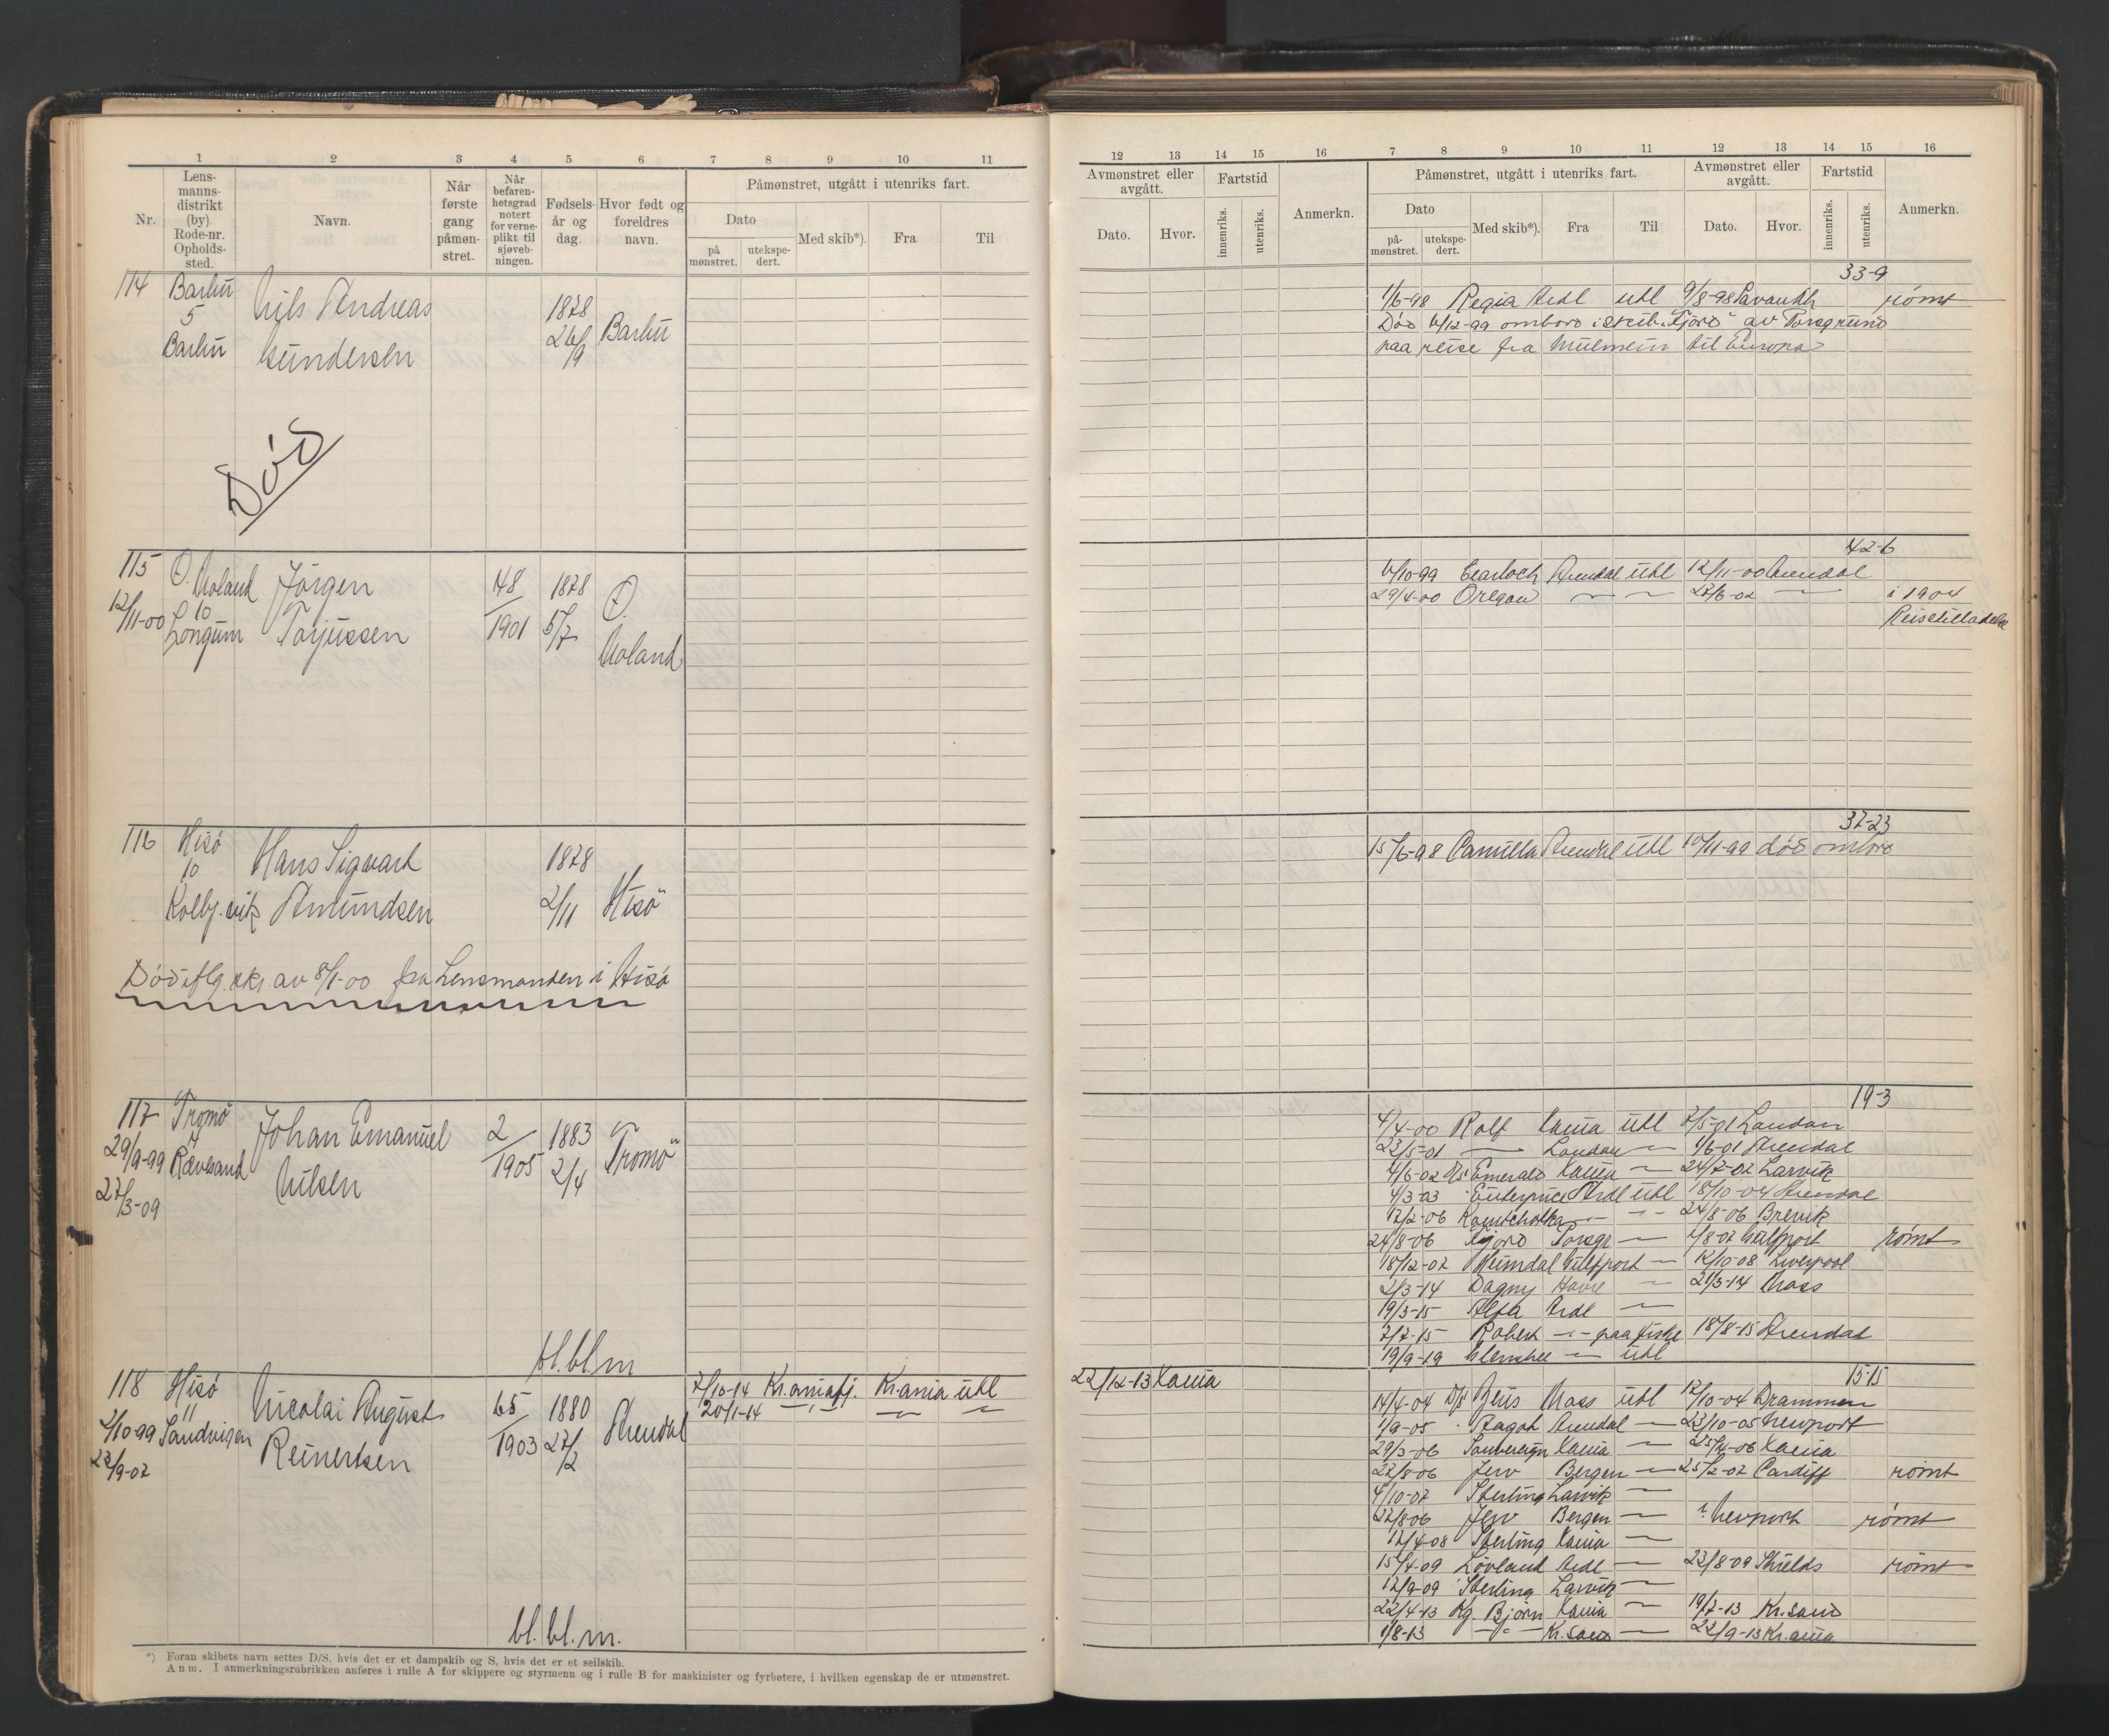 1 2 3 4 5 6 7 8 9 10 11
Nr.
Lens-
manns-
distrikt
(by).
Rode-nr.
Opholds-
sted.
Navn.
Når
første
gang
påmøn-
stret.
Når
befaren-
hetsgrad
notert
for verne-
plikt til
sjøveb-
ningen.
Fødsels-
år og
dag.
Hvor født og
foreldres
navn.
Påmønstret, utgått i utenriks fart.
Dato
på
mønstret.
utekspe-
dert.
Med skib*).
Fra
Til
114 Barbu
5
Barbu
Nils Andreas
Gundersen
1878
26/9
Barbu
Død
115 Ø. Moland
12/11-00 10
Longum
Jörgen
Torjussen
48
1901
1878
5/7
Ø.
Moland
116 Hisö
10
Kolbj.vik
Hans Sigvart
Amundsen
1878
2/11
Hisö
Död iflg. skr. av 8/1-00 fra Lensmanden i Hisö
117 Tromö
4
29/9-99 Rævesand
27/3-09
Johan Emanuel
Nilsen
2
1905
1883
2/4
Tromö
bl.bl.m
118 Hisö
11
2/10-99 Sandvigen
23/9-07
Nicolai August
Reinertsen
65
1903
1880
27/2
Arendal
7/10-14 Kr.aniafj. Kr.ania utl
20/1-14 — " — — —
bl.bl.m.
*) Foran skibets navn settes D/S, hvis det er et dampskib og S, hvis det er et seilskib.
Anm. I anmerkningsrubrikken anføres i rulle A for skippere og styrmenn og i rulle B for maskinister og fyrbøtere, i hvilken egenskap de er utmønstret.
12 13 14 15 16 7 8 9 10 11 12 13 14 15 16
Avmønstret eller
avgått.
Dato.
Hvor.
Fartstid
innenriks.
utenriks.
Anmerkn.
Påmønstret, utgått i utenriks fart.
Dato
på-
mønstret.
utekspe-
dert.
Med skib*).
Fra
Til
Avmønstret eller
avgått.
Dato.
Hvor.
Fartstid
innenriks.
utenriks.
Anmerkn.
33-9
1/6-98 Regia Ardl utl 9/8-98 Savanth rømt
Död 4/12-99 ombord i skib "Fjord" av Porsgrund
paa reise fra Mulmein til Europa
42-6
Gearloch Arendal utl 12/11-00 Arendal
29/4-00 Oregon — — 27/6-02 — i 1904
Reisetilladelse
37-23
15/6-98 Camilla Arendal utl 10/11-99 död ombord
19-3
4/4-00 Rolf Xania utl 7/5-01 London
23/5-01 — London — 1/6-01 Arendal
4/6-02 D/S Emerald Xania — 24/7-02 Larvik
4/3-03 Euterpine Ardl utl 18/10-04 Arendal
12/2-06 Kamtchatka — — 24/8-06 Brevik
24/8-06 Fjord Porsgr — 1/8-07 Gulfport rømt
18/12-07 Heimdal Gulfport — 12/10-08 Liverpool
2/3-14 Dagny Havre — 21/3-14 Moss
19/3-15 Alfa Ardl —
7/7-15 Robert — " — paa fiske 18/8-15 Arendal
19/9-19 — utl
22/12-13 Xania
15-15
14/4-04 D/S Zeus Moss utl 12/10-04 Drammen
1/9-05 Ragot Arendal — 23/10-05 Newport
29/3-06 Souvereign Xania — 25/4-06 Xania
22/8-06 Jerv Bergen — 25/2-07 Cardiff rømt
4/10-07 Sterling Larvik —
22/8-06 Jerv Bergen — i Newport rømt
12/4-08 Sterling Xania —
15/4-09 Lovland Ardl — 23/8-09 Shields rømt
12/9-09 Sterling Larvik —
22/4-13 Kg. Björn Xania — 19/7-13 Kr.sand
1/8-13 — " — Kr.sand — 22/9-13 Kr.ania